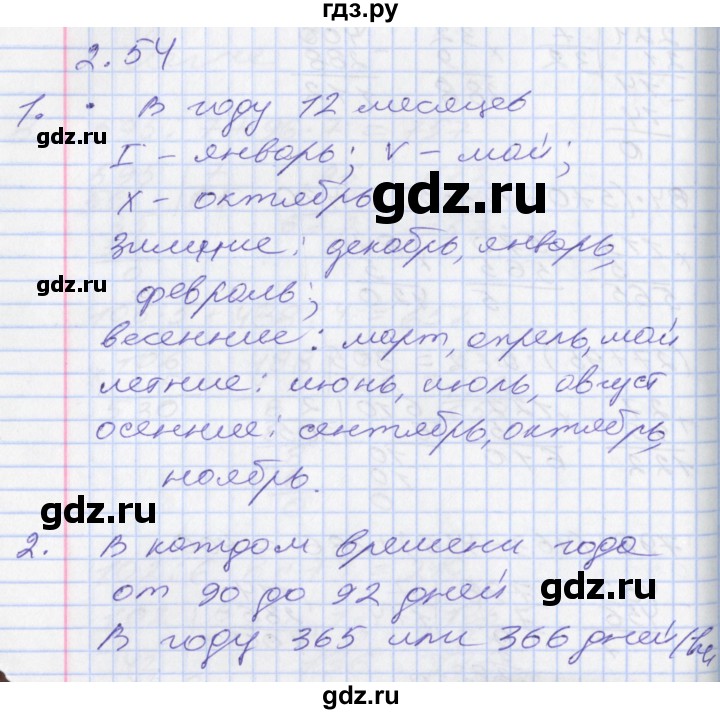 гдз.ру
2.54
1. • В году 12 месяцев
gdz.ru
I – январь; V – май;
X – октябрь
gdz.ru
gdz.ru
зимние: декабрь, январь,
gdz.ru
февраль;
весенние: март, апрель, май
летние: июнь, июль, август
осенние: сентябрь, октябрь,
ноябрь.
gdz.ru
gdz.ru
2. В каждом времени года
от 90 до 92 дней
gdz.ru
В году 365 или 366 дней
gdz.ru
gdz.ru